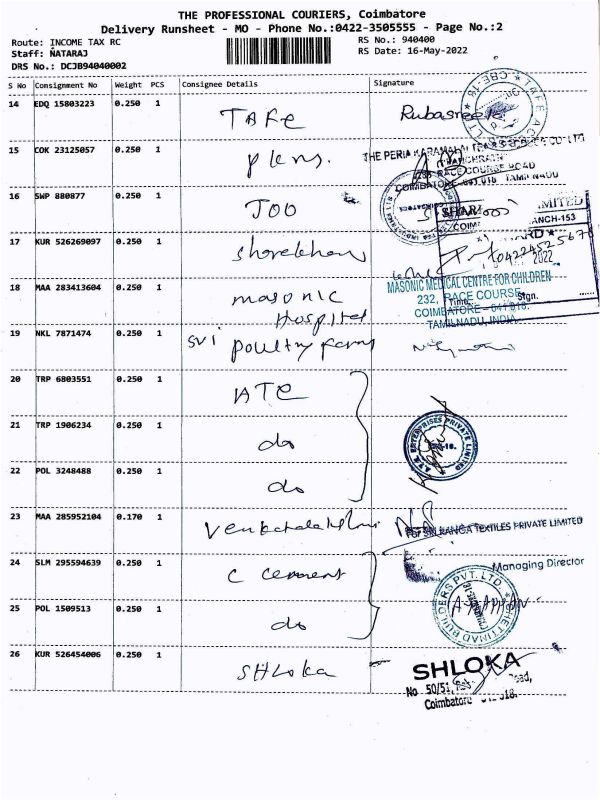 THE PROFESSIONAL COURIERS, Coimbatore
Delivery Runsheet - MO - Phone No.:0422-3505555 - Page No.:2
Route: INCOME TAX RC
Staff: NATARAJ
DRS No.: DCJB94040002
RS No.: 940400
RS Date: 16-May-2022
S No Consignment No Weight PCS Consignee Details Signature
14 EDQ 15803223 0.250 1 TAFe Rubasree
15 COK 23125057 0.250 1 plens.
THE PERIA KARAMALAI TEA & PRODUCE CO LTD
286 RACE COURSE ROAD
COIMBATORE - 641 018 TAMILNADU
16 SWP 880877 0.250 1 JOO
LIMITED
ANCH-153
17 KUR 526269097 0.250 1 sharekhan
2022
18 MAA 283413604 0.250 1 masonic Hospital
MASONIC MEDICAL CENTRE FOR CHILDREN
232, RACE COURSE,
COIMBATORE - 641 018.
TAMILNADU, INDIA.
Time: Sign.
19 NKL 7871474 0.250 1 sri poultry farm
20 TRP 6803551 0.250 1 ATE
21 TRP 1906234 0.250 1 do
A.T.E. ENTERPRISES PRIVATE LIMITED
22 POL 3248488 0.250 1 do
23 MAA 285952104 0.170 1 Venkatalakshmi
For SRI RANGA TEXTILES PRIVATE LIMITED
24 SLM 295594639 0.250 1 C cement
Managing Director
25 POL 1509513 0.250 1 do
CHETTINAD BUILDERS PVT. LTD.
26 KUR 526454006 0.250 1 SHLoka
SHLOKA
No 50/51, Road,
Coimbatore 018.